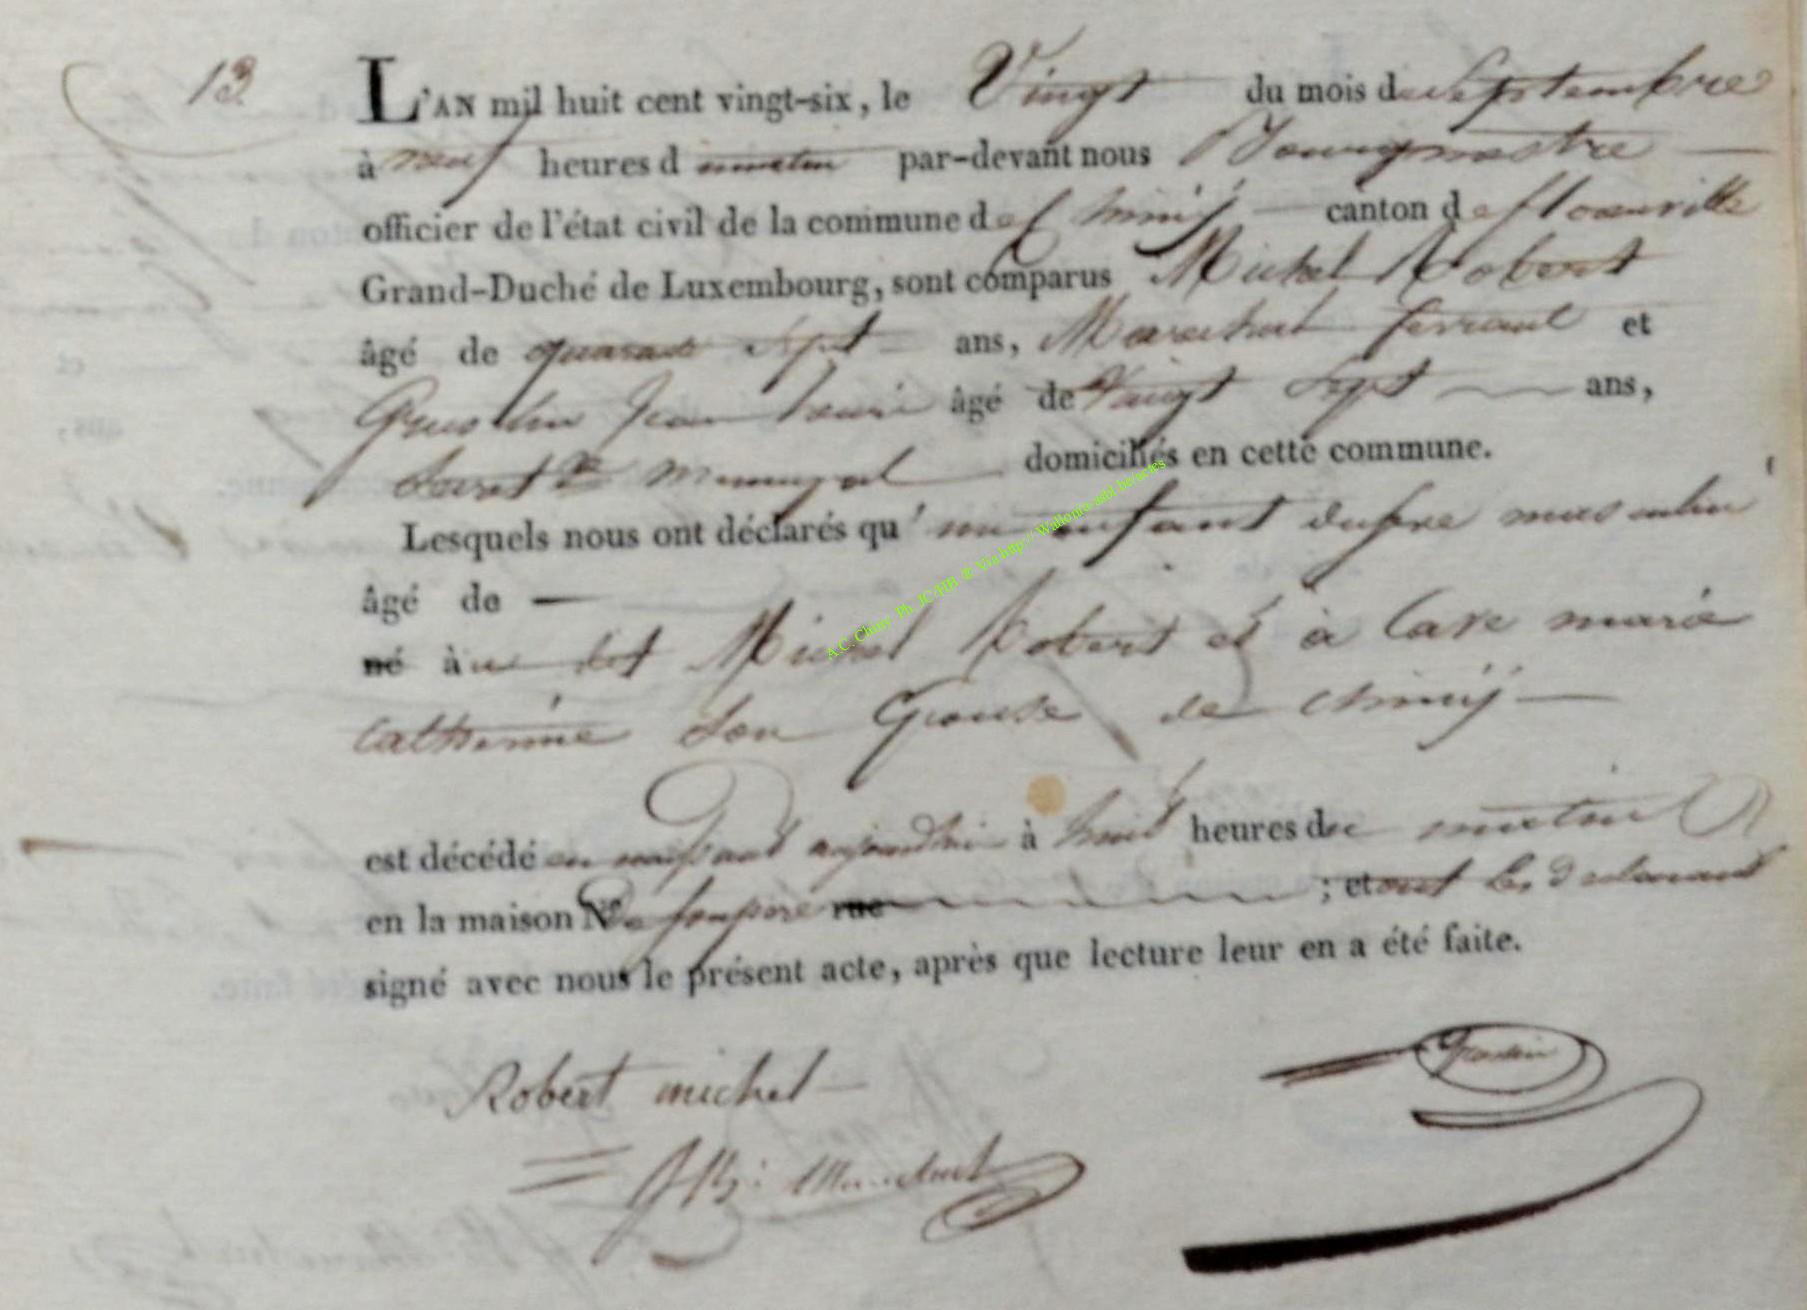 13. L'AN mil huit cent vingt-six, le Vingt du mois de Septembre
à neuf heures d matin par-devant nous Bourgmestre
officier de l'état civil de la commune de Chiny canton de florenville
Grand-Duché de Luxembourg, sont comparus Michel Robert
âgé de quarante Sept ans, Marechal ferrant et
Jean henri âgé de Vingt Sept ans,
domiciliés en cette commune.
Lesquels nous ont déclarés qu'un enfant du sexe masculin
âgé de —
né à du dit Michel Robert et à marie
Catherine Son Epouse de chiny
est décédé en naissant aujourdhui à huit heures du matin
en la maison N° de son père rue ; et ont les declarant
signé avec nous le présent acte, après que lecture leur en a été faite.
Robert michel
A.C. Chiny Ph. JC/HB © Via http://Wallonia-asbl.be/actes